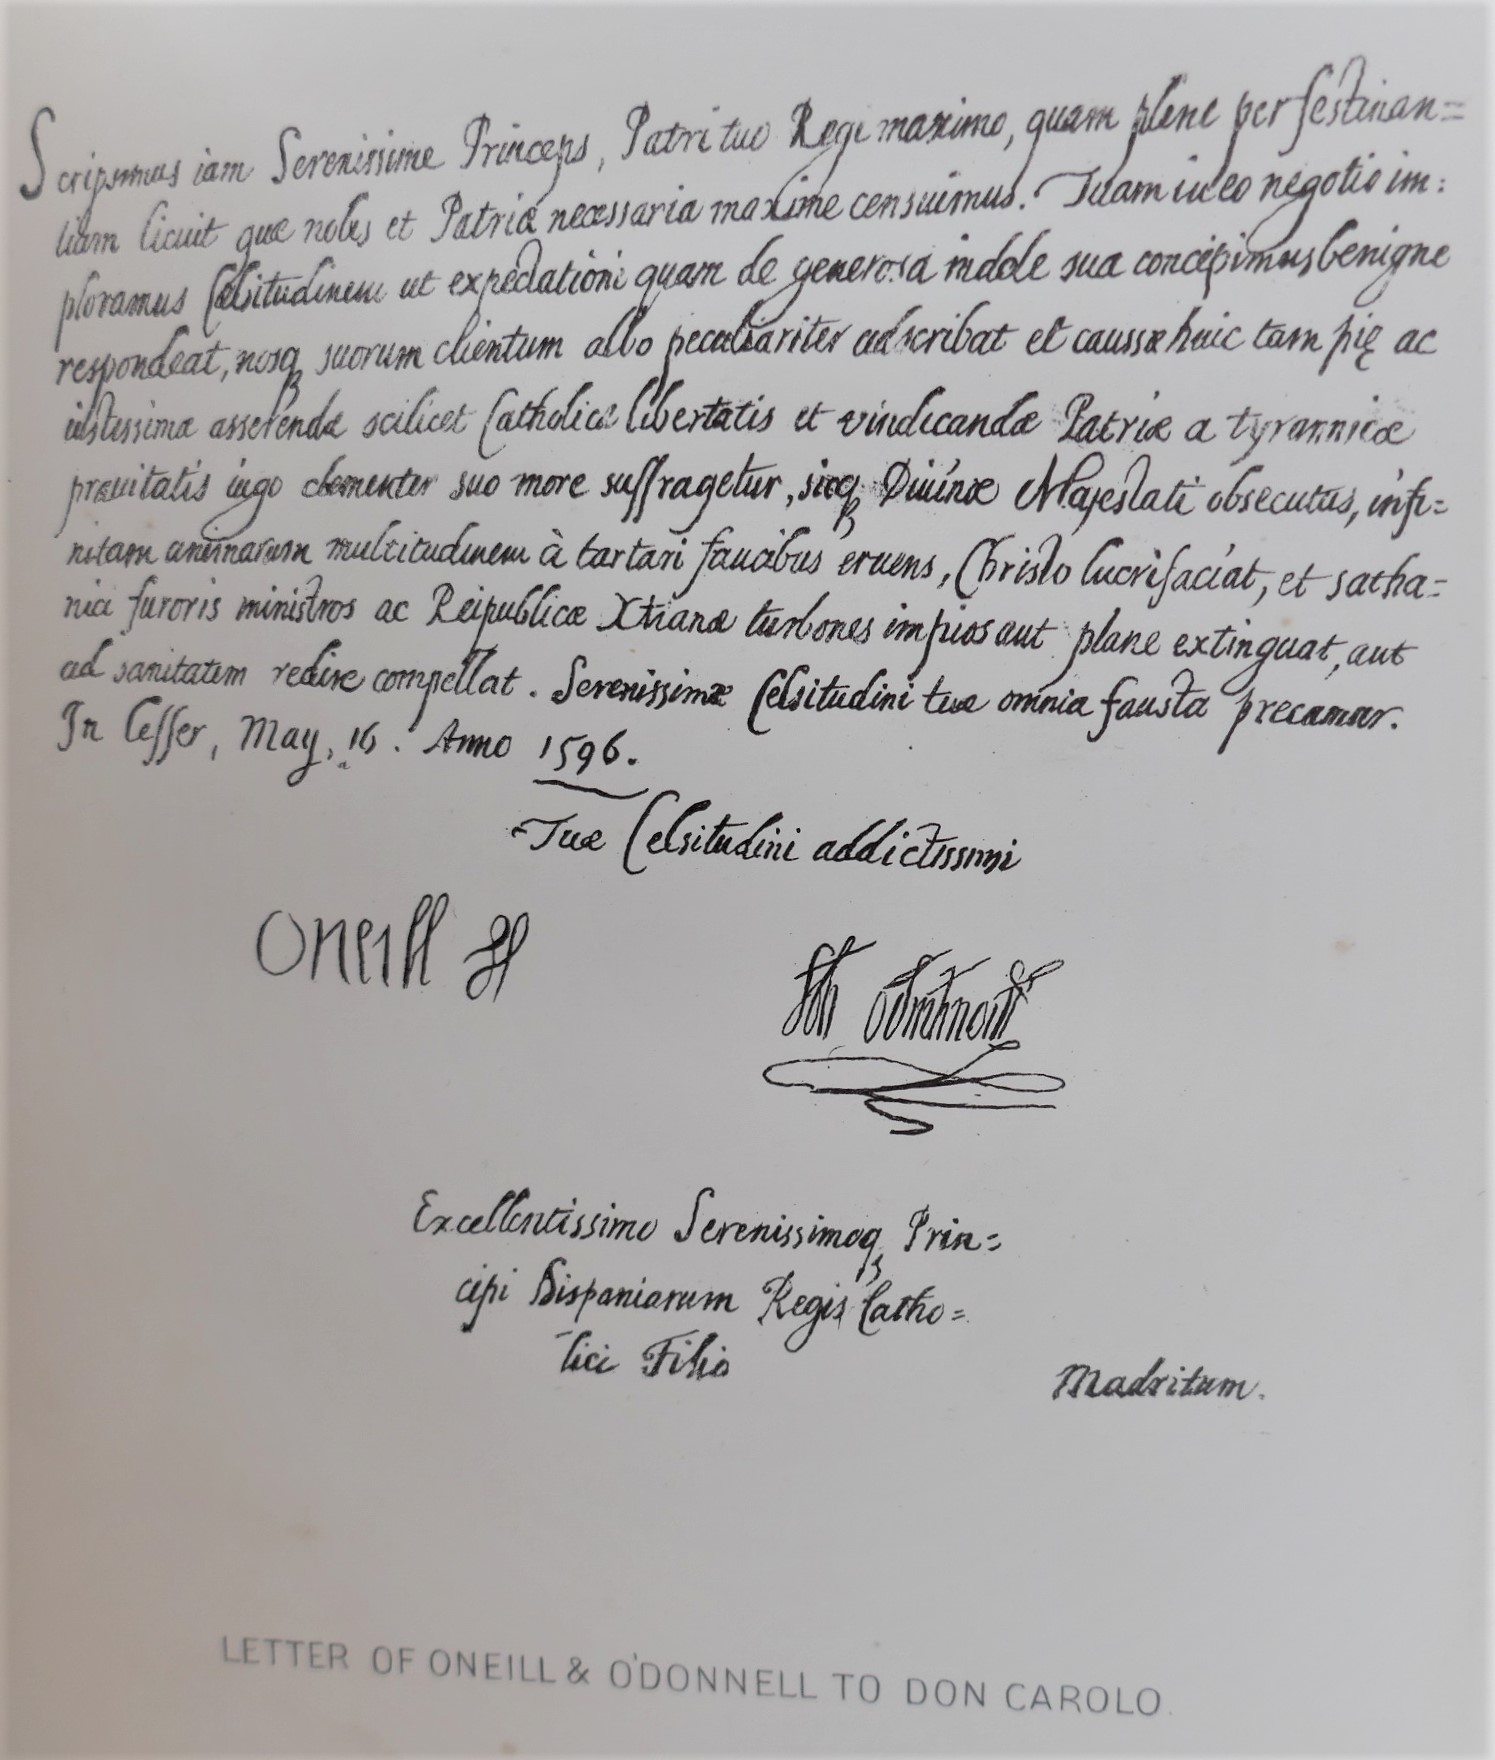 Scripsimus iam Serenissime Princeps, Patri tuo Regi maximo, quam plene per festinan=
tiam licuit quæ nobis et Patriæ necessaria maxime censuimus. Tuam in eo negotio im:
ploramus Celsitudinem ut expectationi quam de generosa indole sua concepimus benigne
respondeat, nosq suorum clientum albo peculiariter adscribat et caussæ huic tam pię ac
iustissimæ asserendæ scilicet Catholicæ libertatis et vindicandæ Patriæ a tyrannicæ
prauitatis iugo clementer suo more suffragetur, sicq Diuinæ Majestati obsecutus, infi=
nitam animarum multitudinem à tartari faucibus eruens, Christo lucrifaciat, et satha=
nici furoris ministros ac Reipublicæ Xtianæ turbones impios aut plane extinguat, aut
ad sanitatem redire compellat. Serenissimæ Celsitudini tuæ omnia fausta precamur.
In Lesser, May, 16. Anno 1596.
Tuæ Celsitudini addictissimi
ONeill H
Excellentissimo Serenissimoq Prin=
cipi Hispaniarum Regis Catho=
lici Filio
Madritum.
LETTER OF ONEILL & O'DONNELL TO DON CAROLO.